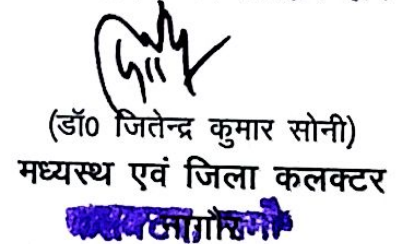 (डॉ0 जितेन्द्र कुमार सोनी)
मध्यस्थ एवं जिला कलक्टर
नागौर